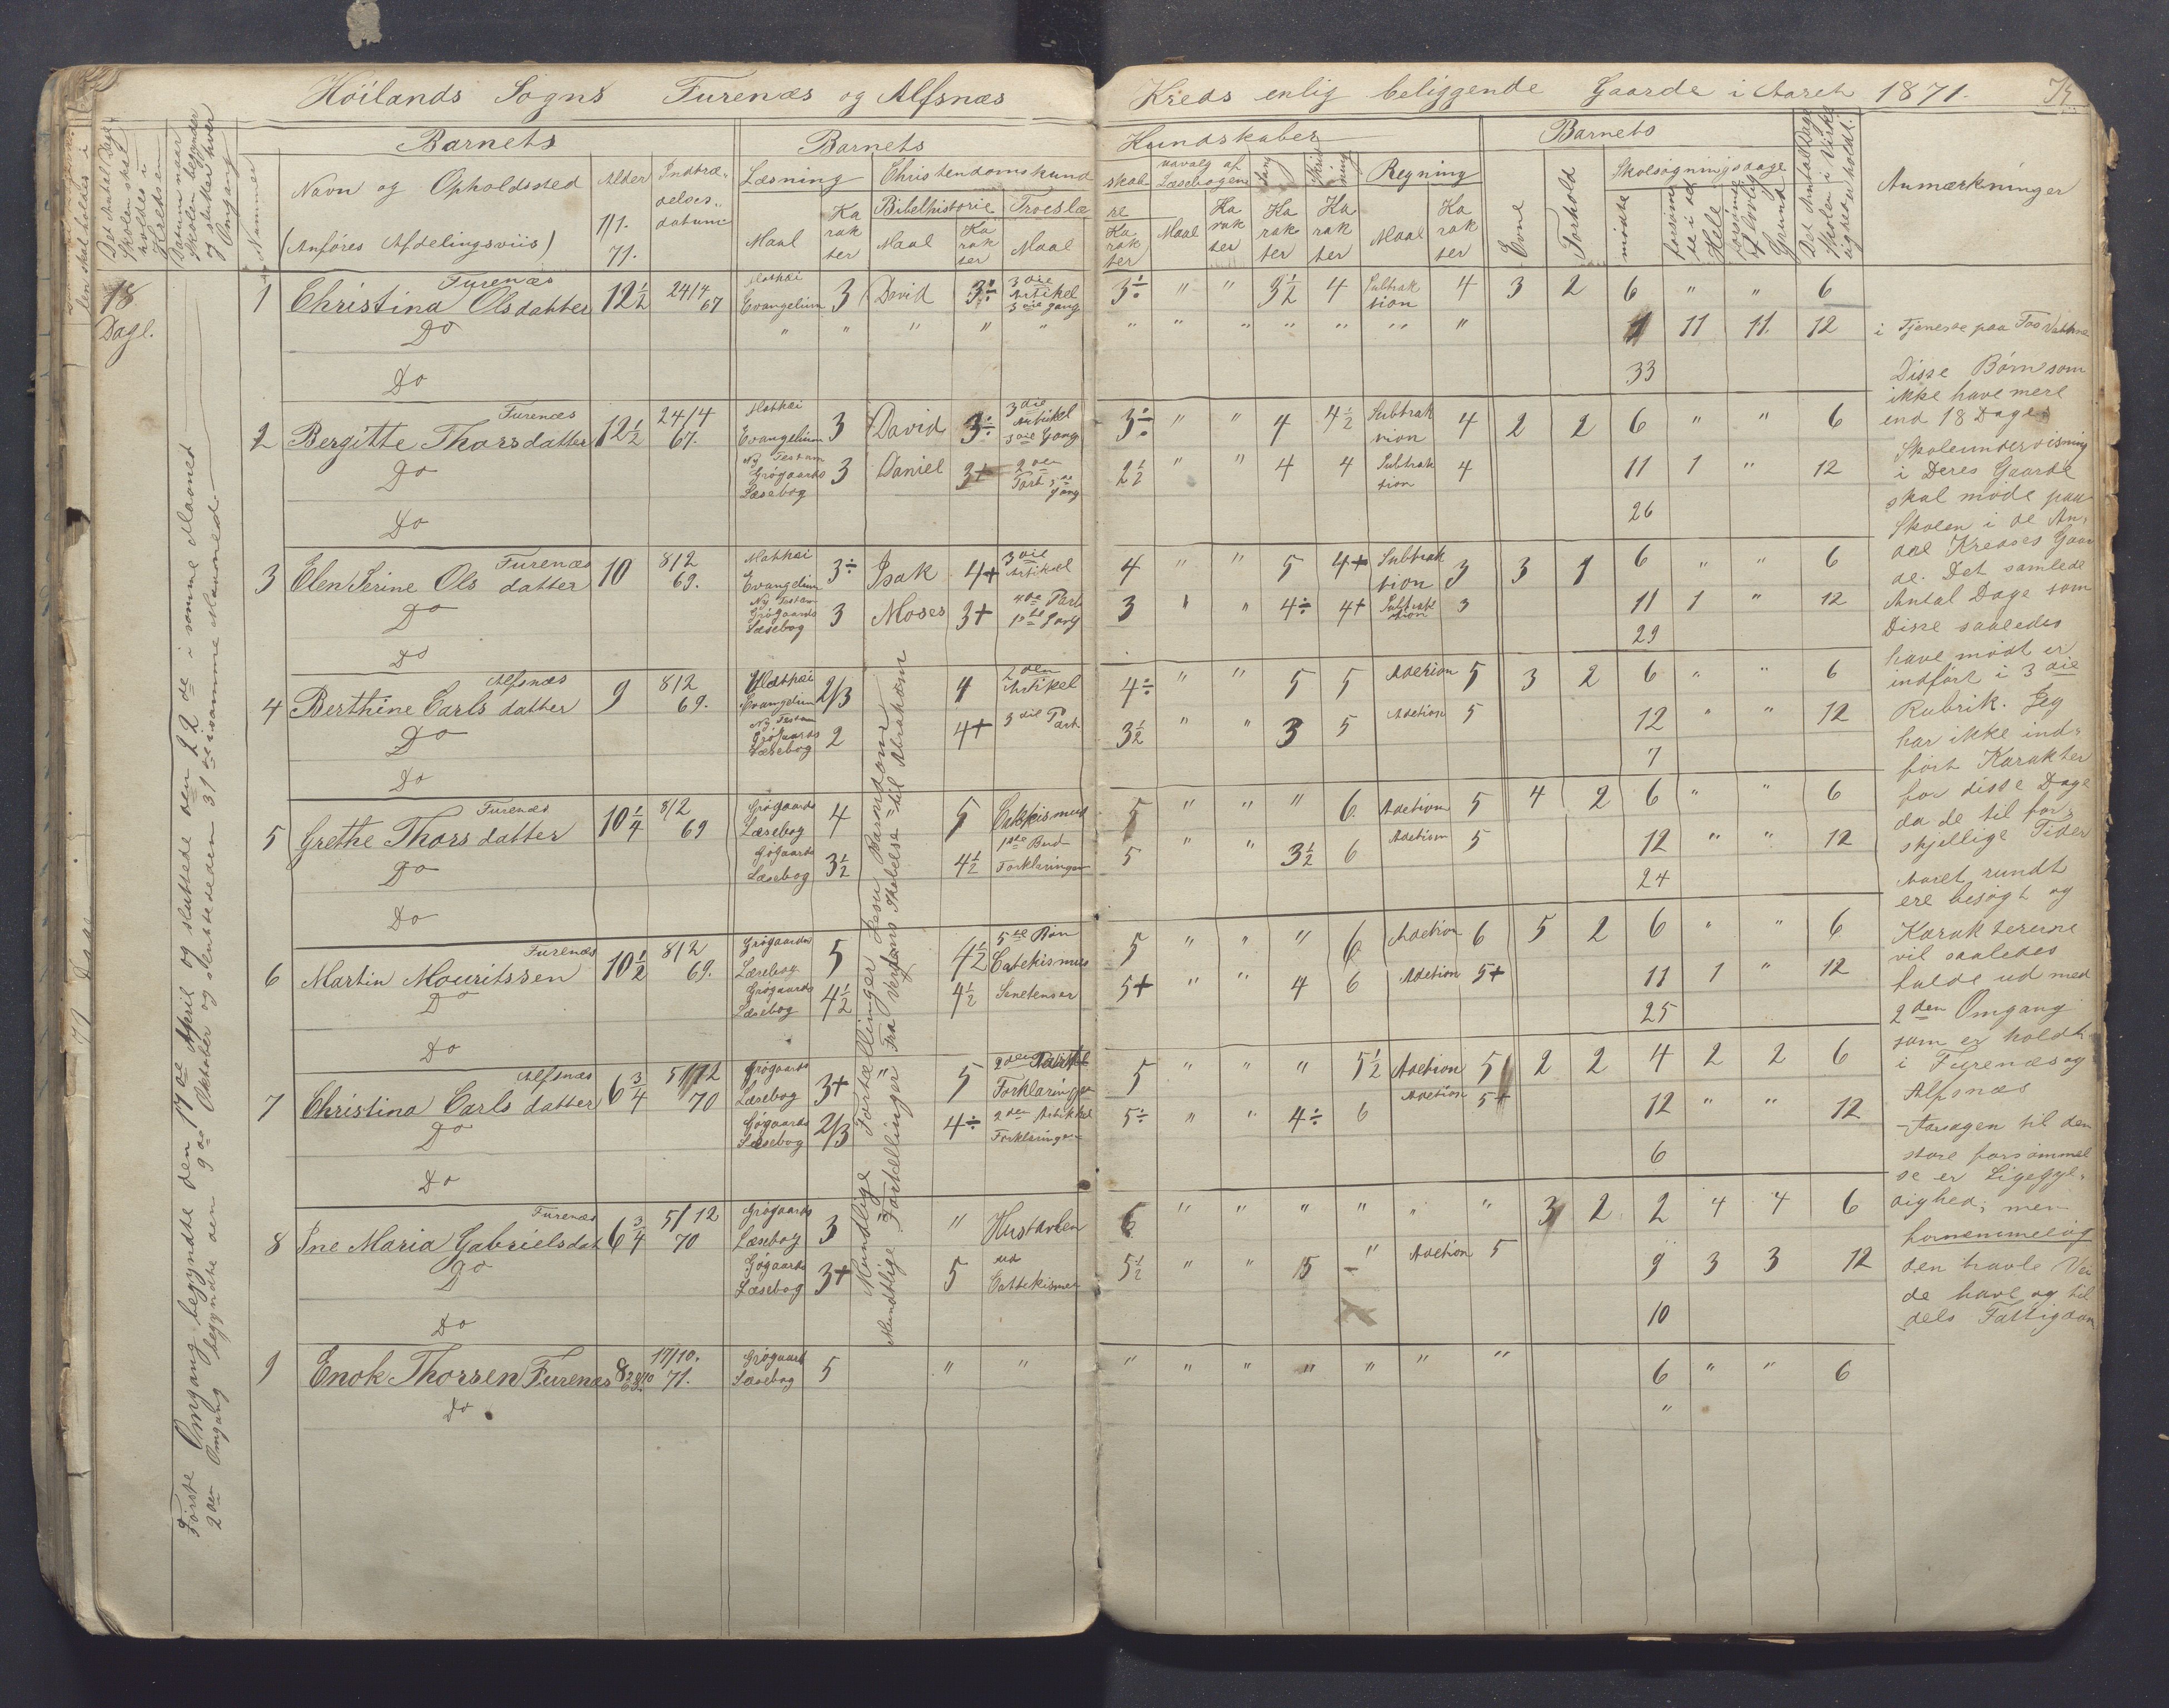 Höilands Sogns Furenæs og Alfsnæs Kreds enlig beliggende Gaarde i Aaret 1871.
Det Antal Dage Skolen skal holdes i Kredsen
Datum naar Skolen begynder og slutter hver Omgang
Nummer
Barnets
Navn og Opholdssted
(Anføres Afdelingsviis)
Alder 1/1. 71.
Indtræ„ delses„ datum
Barnets Kundskaber
Læsning Christendomskundskab
Maal Karakter
Bibelhistorie Maal Karakter
Troeslære Maal Karakter
Udvalg af Læsebogen Maal Karakter
Sang Karakter
Skrivning Karakter
Regning Maal Karakter
Barnets
Evne
Forhold
Skolesøgningsdage
mødte
forsømte i det Hele
forsømte af lovlig Grund
Det Antal Dage Skolen i Virkeligheden er holdt.
Anmærkninger
18 Dage.
Første Omgang begyndte den 17de April og sluttede den 22de i samme Maaned
2den Omgang begyndte den 9de Oktober og sluttede den 31te i samme Maaned
Mundtlige Fortællinger Jesu Barndom
Mundtlige Fortællinger Fra Verdens Skabelse til Abraham
1 Christina Olsdatter Furenæs 12½ 24/4 67 Mathæi Evangelium 3 David 3÷ 3die Artikel 3die Gang 3÷ " " 3½ 4 Subtraktion 4 3 2 6 " " 6
Do " " " " " " " " " " " " 1 11 11. 12 i Tjeneste paa
Do 33
2 Bergitte Thorsdatter Furenæs 12½ 24/4 67. Mathæi Evangelium 3 David 3÷ 3die Artikel 3die Gang 3÷ " " 4 4½ Subtraktion 4 2 2 6 " " 6
Do Ny Testam Grøgaards Læsebog 3 Daniel 3+ 2den Part 3die Gang 2½ " " 4 4 Subtraktion 4 11 1 " 12
Do 26
3 Elen Serine Olsdatter Furenæs 10 8/2 69. Mathæi Evangelium 3÷ Isak 4+ 3die Artikel 4 " " 5 4+ Subtraktion 3 3 1 6 " " 6
Do Ny Testam Grøgaards Læsebog 3 Moses 3+ 4de Part 1ste Gang 3 " " 4÷ 4+ Subtraktion 3 11 1 " 12
Do 29
4 Berthine Carlsdatter Alfsnæs 9 8/2 69. Mathæi Evangelium 2/3 4 2den Artikel 4÷ " " 5 5 Adetion 5 3 2 6 " " 6
Do Ny Testam Grøgaards Læsebog 2 4+ 3die Part. 3½ " " 3 5 Adetion 5 12 " " 12
Do 7
5 Grethe Thorsdatter Furenæs 10¼ 8/2 69 Grøgaards Læsebog 4 5 Catekismus 5 " " " 6. Adetion 5 4 2 6 " " 6
Do Grøgaards Læsebog 3½ 4½ 1ste Bud Forklaringen 5 " " 3½ 6 Adetion 5 12 " " 12
Do 24
6 Martin Mouritssen Furenæs 10½ 8/2 69. Grøgaards Læsebog 5 4½ 5te Bøn Catekismus 5 " " " 6 Adetion 6 5 2 6 " " 6
Do Grøgaards Læsebog 4½ 4½ 5+ " " 4 6 Adetion 5+ 11 1 " 12
Do 25
7 Christina Carlsdatter Alfsnæs 6¾ 5/12 70 Grøgaards Læsebog 3+ 5 2den Forklaringen 5 " " " 5½ Adetion 5 2 2 4 2 2 6
Do Grøgaards Læsebog 2/3 4÷ 2den Artikkel Forklaringen 5÷ " " 4÷ 6 Adetion 5+ 12 " " 12
Do 6
8 Ine Maria Gabrielsdat Furenæs 6¾ 5/12 70 Grøgaards Læsebog 3 " Hustavlen 6 " " " " " " 3 2 2 4 4 6
Do Grøgaards Læsebog 3+ 5 ud Cattekismen 5½ " " 5 " Adetion 5 9 3 3 12
Do 10
9 Enok Thorsen Furenæs 17/10. 71. Grøgaards Læsebog 5 " " " " " " " " " 6 " " 6
Do "
Disse Børn som
ikke have mere
end 18 Dages
Skoleundervisning
i Deres Gaarde
skal møde paa
Skolen i de An„
dre Kredses Gaar
de. Det samlede
Antal Dage som
Disse saaledes
have mødt er
indført i 3die
Rubrik. Jeg
har ikke ind„
ført Karakter
for disse Dage
da de til for„
skjellige Tider
Aaret rundt
ere besøgt og
Karaktererne
vil saaledes
falde ud med
2den Omgang
som er holdt
i Furenæs og
Alfsnæs
Aarsagen til den
store forsømmel
se er Ligegyl„
dighed; men
fornemmelig
den travle Vei
de have og til
dels Fattigdom